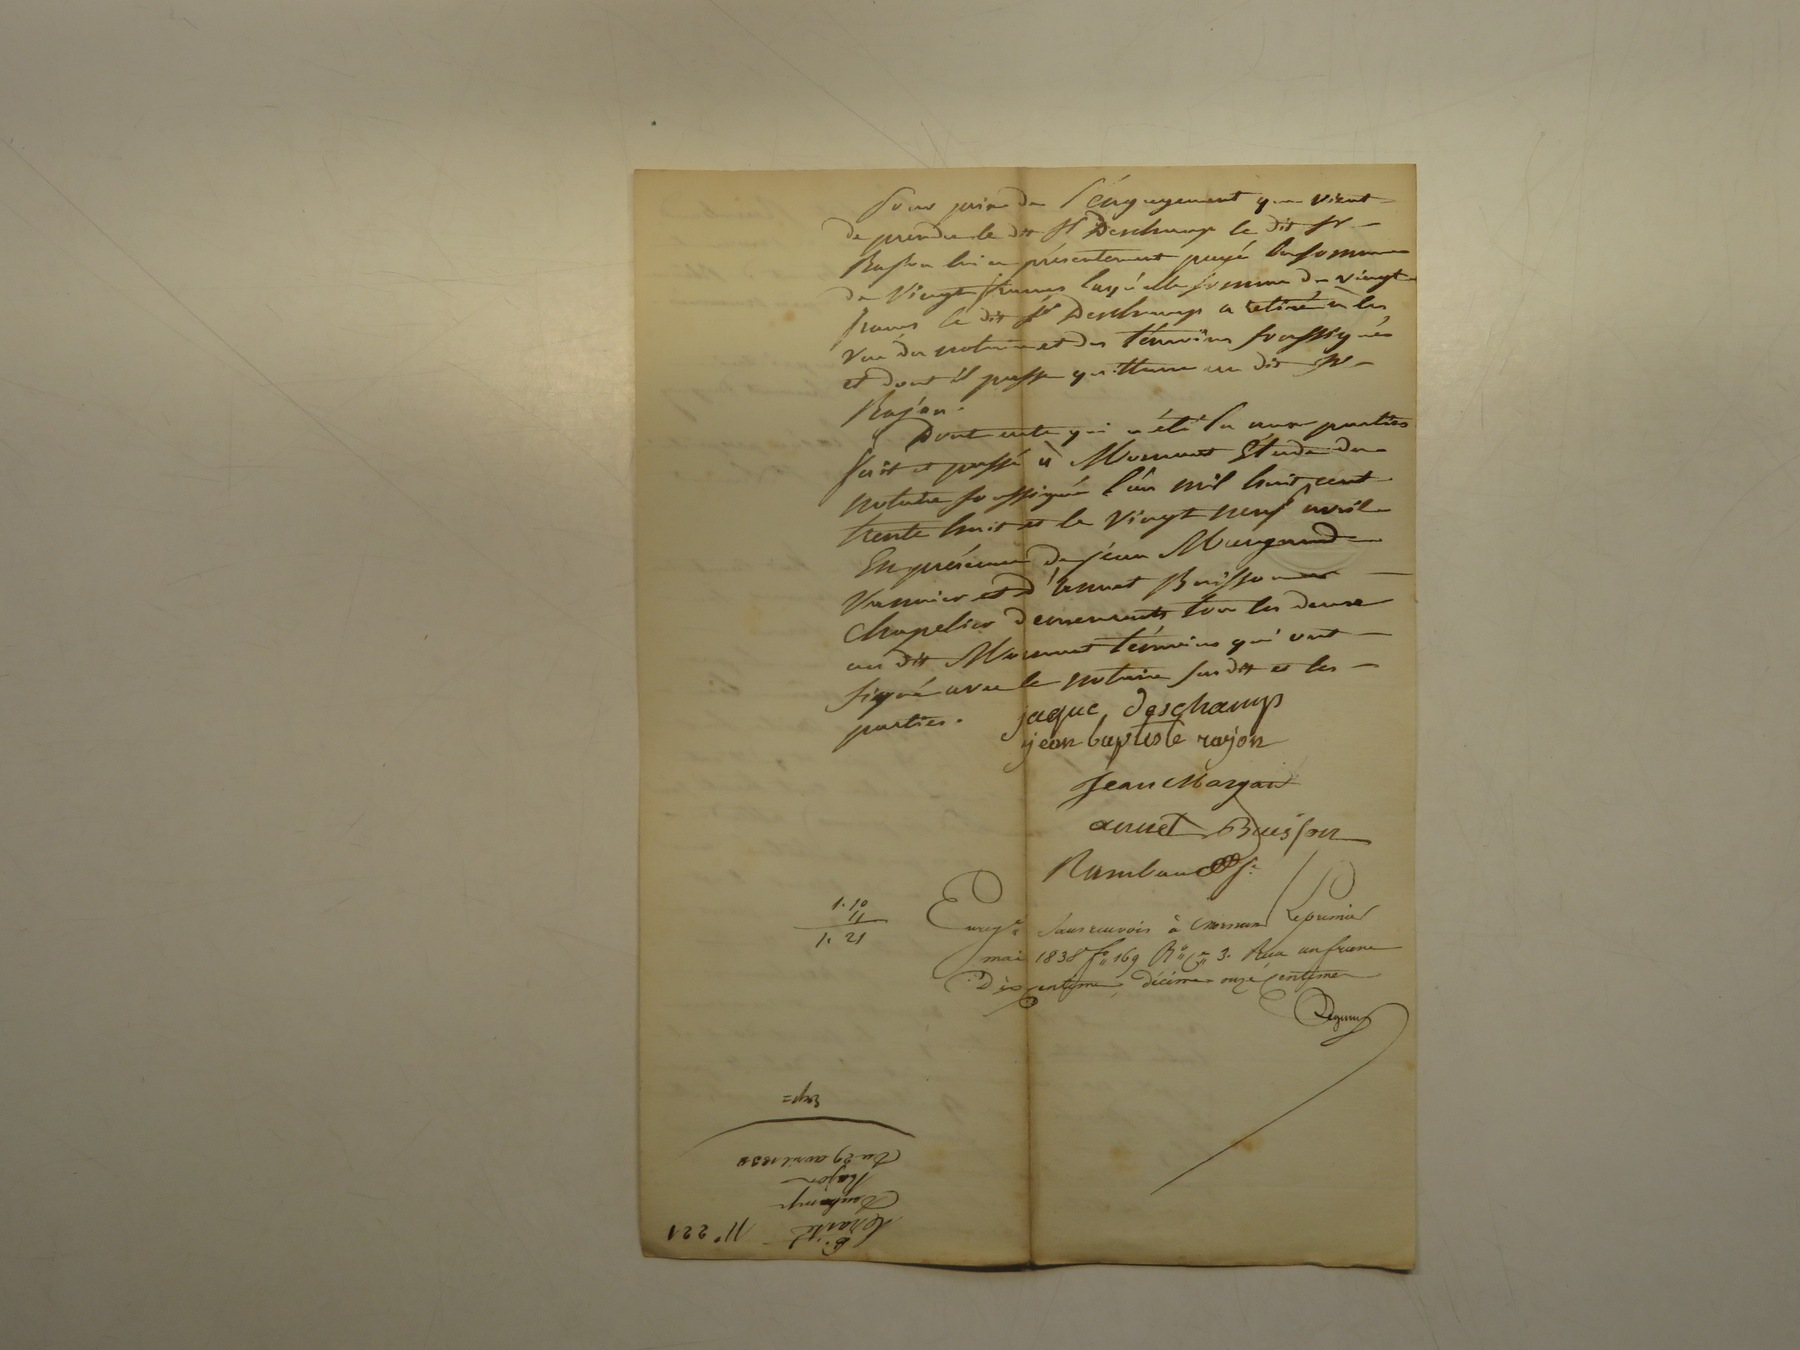 Pour prix de l'engagement que vient
de prendre le dit Sr Deschamp le dit Sr
Rajon lui a présentement payé la somme
de Vingt francs laquelle somme de vingt
francs le dit Sr Deschamp a retiré à la
vue du notaire et des témoins soussignés
et dont il passe quittance au dit Sr
Rajon.
Dont acte qui a été lu aux parties
fait et passé à Mornant Etude du
notaire soussigné l'an mil huit cent
trente huit et le vingt neuf avril
En présence de Jean Margand
Vannier et d'annet Buisson
Chapelier demeurants tous les deux
au dit Mornant témoins qui ont
signé avec le notaire susdit et les
parties.
jaque deschamp
jean baptiste rajon
Jean Margand
annet Buisson
Rambaud
1.10
11
1. 21
Enregé à Mornant le premier
mai 1838 fo 169 Ro Ce 3. Reçu un franc
Dix centimes, décime onze centimes
Exp=
Du 29 avril 1838
Rajon
Deschamp
Nº 221